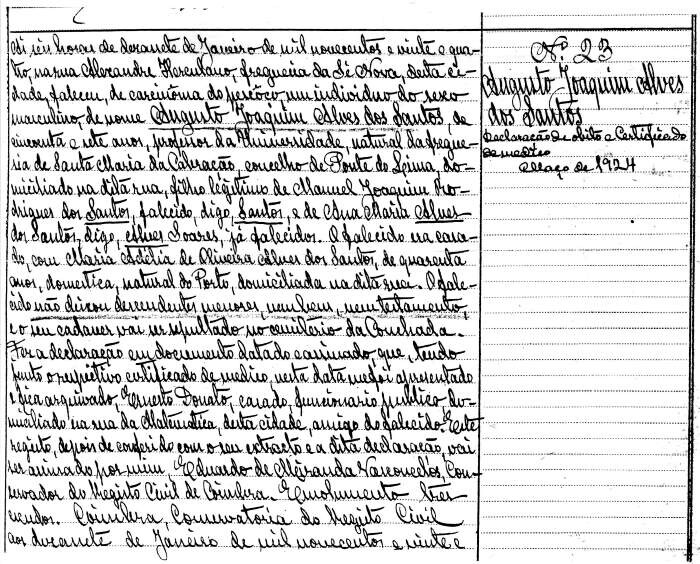 Ás seis horas de dezassete de Janeiro de mil novecentos e vinte e qua-
tro, na rua Alexandre Herculano, freguezia da Sé Nova, desta ci-
dade, faleceu, de carcinôma do pescôço, um individuo do sexo
masculino, de nome Augusto Joaquim Alves dos Santos, de
cincoenta e sete anos, professor da Universidade, natural da fregue-
sia de Santa Maria da Cabração, concelho de Ponte do Lima, do-
miciliado na dita rua, filho legítimo de Manuel Joaquim Ro-
drigues dos Santos, falecido, digo, Santos, e de Ana Maria Alves
dos Santos, digo, Alves Soares, já falecidos. O falecido era casa-
do, com Maria Adélia de Oliveira Alves dos Santos, de quarenta
anos, domestica, natural do Porto, domiciliada na dita rua. O fale-
cido não deixou descendentes menores, nem bens, nem testamento,
e o seu cadaver vai ser sepultado no cemitério da Conchada.
Fez a declaração em documento datado e assinado que, tendo
junto o respetivo certificado de medico, nesta data me foi apresentado
e fica arquivado, Ernesto Donato, casado, funcionario publico, do-
miciliado na rua da Matematica, desta cidade, amigo do falecido. Este
registo, depois de conferido com o seu extracto e a dita declaração, vai
ser assinado por mim, Eduardo de Miranda Vasconcelos, Con-
servador do Registo Civil de Coimbra. Emolumento tres
escudos. Coimbra, Conservatoria do Registo Civil
aos dezassete de Janeiro de mil novecentos e vinte e
Nº 23
Augusto Joaquim Alves
dos Santos
Declaração de obito e Certificado
de medico
Março de 1924